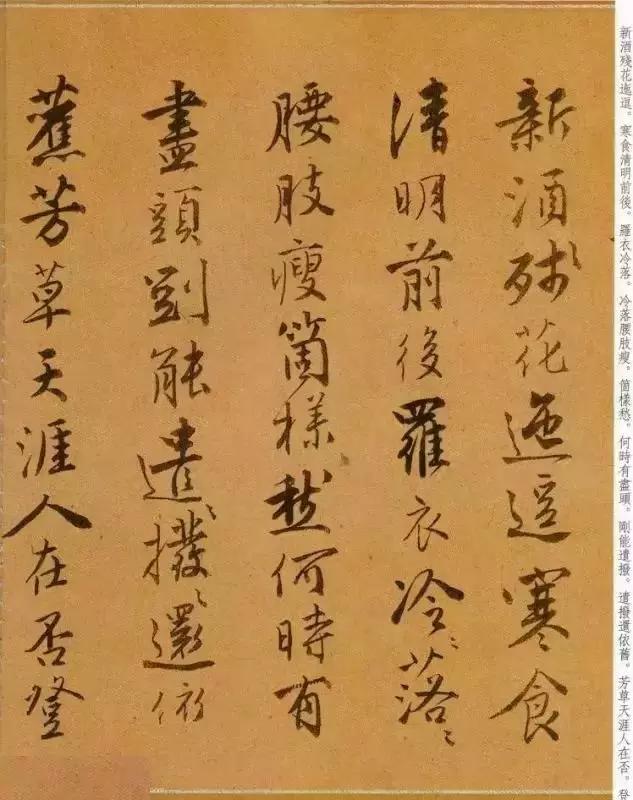 新酒殘花迤逗。寒食清明前後。羅衣冷落。冷落腰肢瘦。箇樣愁。何時有盡頭。剛能遣撥。遣撥還依舊。芳草天涯人在否。登
新酒殘花迤逗寒食
清明前後羅衣冷〻落〻
腰肢瘦箇樣愁何時有
盡頭剛能遣〻撥〻還依
舊芳草天涯人在否登